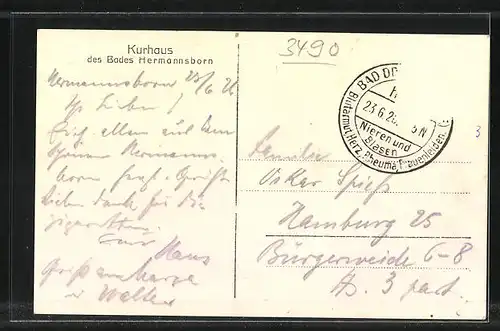 Kurhaus
des Bades Hermannsborn
3490
Hermannsborn 23/6 26
Ihr Lieben!
Euch allen aus dem
schönen Hermanns-
born herzl. Grüße
Lieben Dank für die
Euer
Hans
Gruß
u. Walter
BAD D
23.6.26. 5 N
Nieren und
Blasen
Blutarmut, Herz, Rheuma, Frauenleiden.
3
Familie
Oskar Spieß
Hamburg 25
Bürgerweide 6-8
Hs. 3 part.